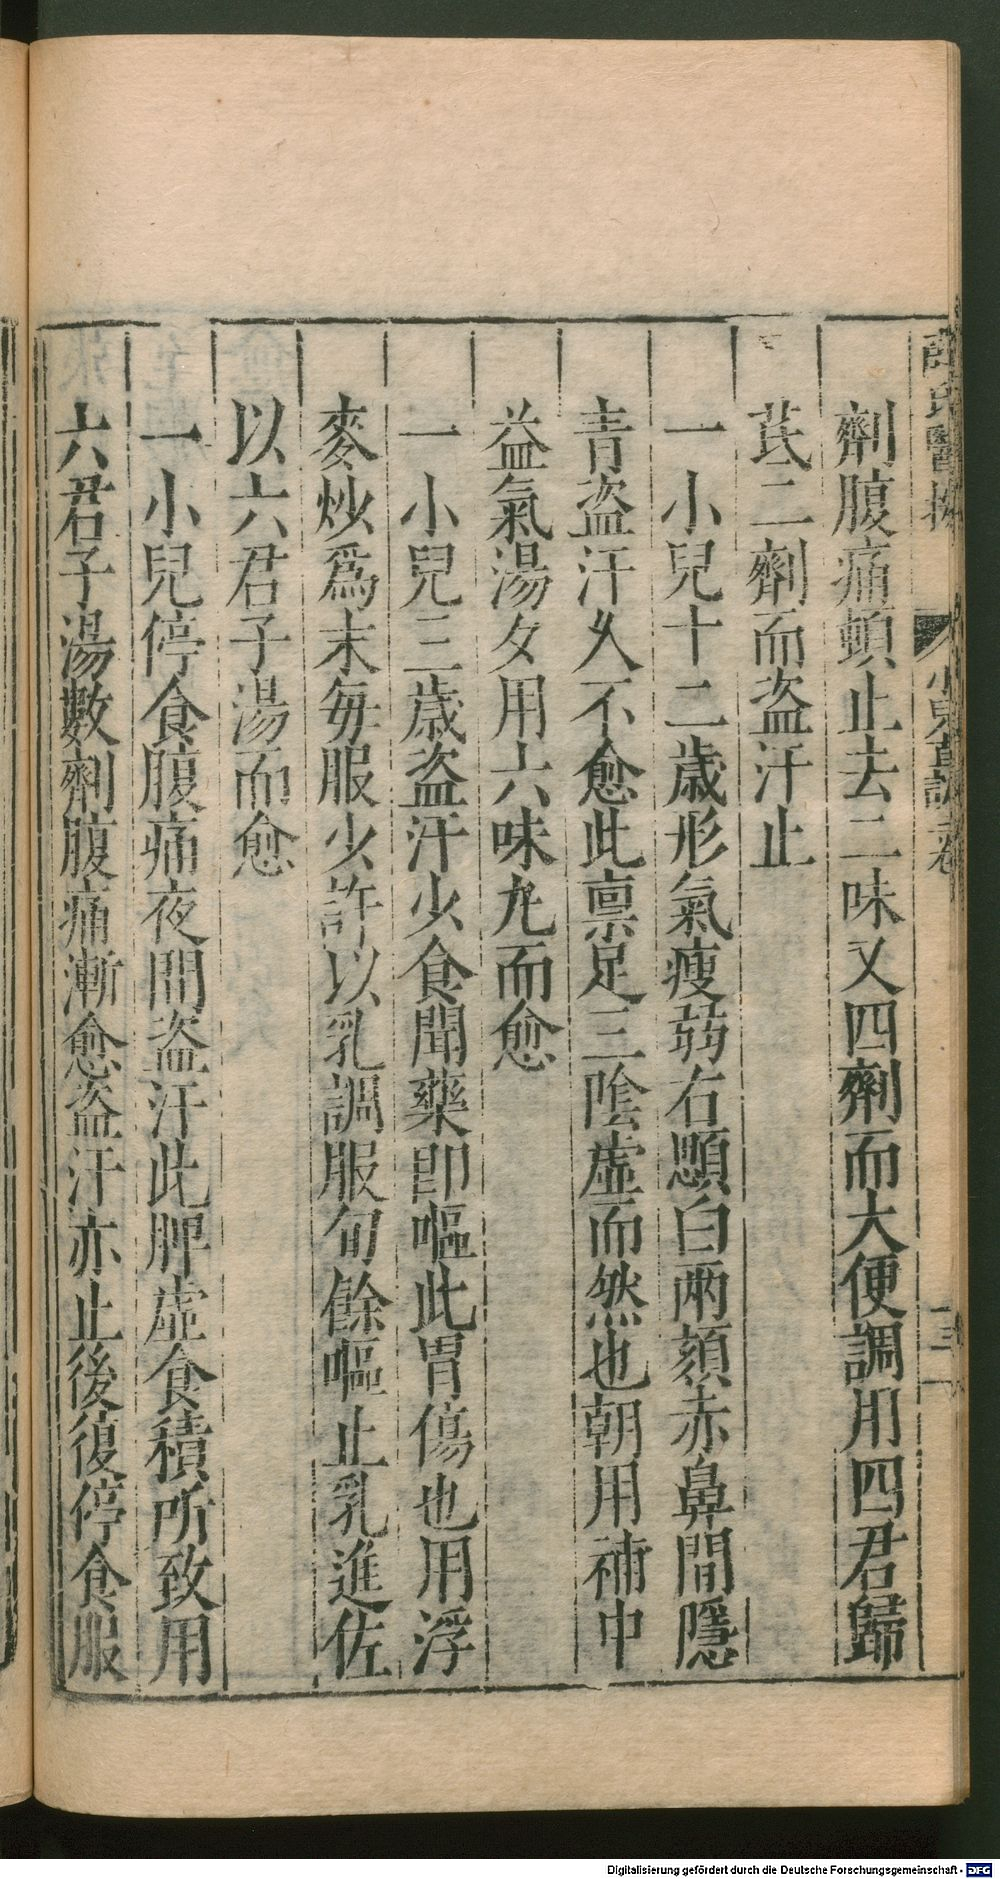 劑腹痛頓止去二味又四劑而大便調用四君歸
芪二劑而盗汗止
一小兒十二歲形氣瘦弱右顋白兩頰赤鼻間隱
青盗汗久不愈此禀足三陰虛而然也朝用補中
益氣湯夕用六味丸而愈
一小兒三歲盗汗少食聞藥卽嘔此胃傷也用浮
麥炒爲末每服少許以乳調服旬餘嘔止乳進佐
以六君子湯而愈
一小兒停食腹痛夜間盗汗此脾虛食積所致用
六君子湯數劑腹痛漸愈盗汗亦止後復停食服
Digitalisierung gefördert durch die Deutsche Forschungsgemeinschaft - DFG